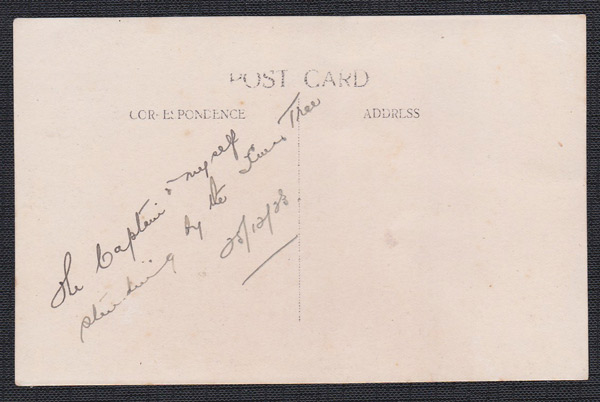 POST CARD
CORRESPONDENCE
ADDRESS
The Captain & myself
standing by the Xmas Tree
25/12/23.